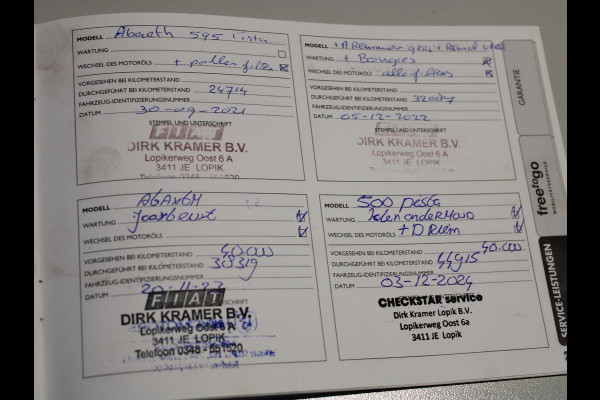 MODELL Abarth 595 Lista
WARTUNG
WECHSEL DES MOTORÖLS + pollen filter
VORGESEHEN BEI KILOMETERSTAND
DURCHGEFÜHRT BEI KILOMETERSTAND 24714
FAHRZEUG-IDENTIFIZIERUNGSNUMMER
DATUM 30-09-2021
STEMPEL UND UNTERSCHRIFT
FIAT
DIRK KRAMER B.V.
Lopikerweg Oost 6 A
3411 JE LOPIK
MODELL
WARTUNG + Bougies
WECHSEL DES MOTORÖLS alle filters
VORGESEHEN BEI KILOMETERSTAND
DURCHGEFÜHRT BEI KILOMETERSTAND
FAHRZEUG-IDENTIFIZIERUNGSNUMMER
DATUM 05-12-2022
STEMPEL UND UNTERSCHRIFT
FIAT
DIRK KRAMER B.V.
Lopikerweg Oost 6 A
3411 JE LOPIK
MODELL Abarth
WARTUNG Jaarbeurt
WECHSEL DES MOTORÖLS
VORGESEHEN BEI KILOMETERSTAND 40.000
DURCHGEFÜHRT BEI KILOMETERSTAND
FAHRZEUG-IDENTIFIZIERUNGSNUMMER
DATUM 20-11-23
FIAT
DIRK KRAMER B.V.
Lopikerweg Oost 6 A
3411 JE LOPIK
Telefoon 0348 - 551520
MODELL 500
WARTUNG
WECHSEL DES MOTORÖLS
VORGESEHEN BEI KILOMETERSTAND 40.000
DURCHGEFÜHRT BEI KILOMETERSTAND 44915
FAHRZEUG-IDENTIFIZIERUNGSNUMMER
DATUM 03-12-2024
CHECKSTAR service
Dirk Kramer Lopik B.V.
Lopikerweg Oost 6a
3411 JE Lopik
GARANTIE
freetogo
SERVICE-LEISTUNGEN